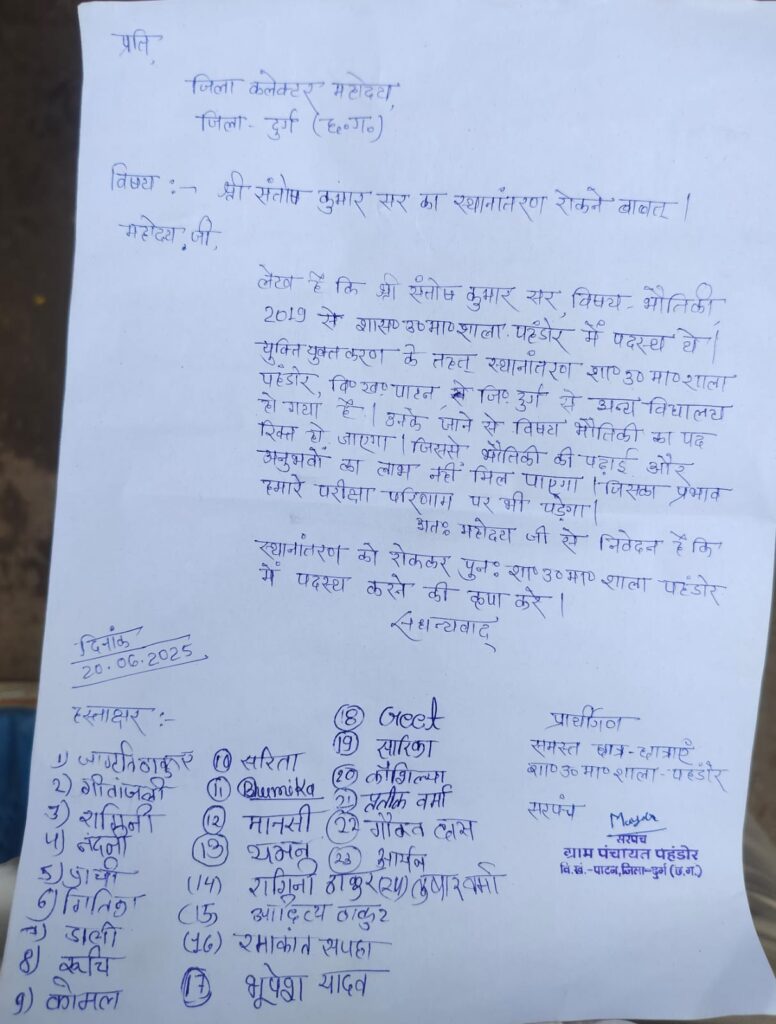 प्रति,
जिला कलेक्टर महोदय,
जिला - दुर्ग (छ॰ग॰)
विषय :- श्री संतोष कुमार सर का स्थानांतरण रोकने बाबत् |
महोदय जी,
लेख है कि श्री संतोष कुमार सर, विषय - भौतिकी,
2019 से शास॰ उ॰ मा॰ शाला पहंडोर में पदस्थ थे |
युक्तियुक्तकरण के तहत् स्थानांतरण शा॰ उ॰ मा॰ शाला
पहंडोर, वि॰ख॰ पाटन, से जि॰ दुर्ग से अन्य विद्यालय
हो गया है | उनके जाने से विषय भौतिकी का पद
रिक्त हो जाएगा | जिससे भौतिकी की पढ़ाई और
अनुभवों का लाभ नहीं मिल पाएगा | जिसका प्रभाव
हमारे परीक्षा परिणाम पर भी पड़ेगा |
अतः महोदय जी से निवेदन है कि
स्थानांतरण को रोककर पुनः शा॰ उ॰ मा॰ शाला पहंडोर
में पदस्थ करने की कृपा करे |
सधन्यवाद्
दिनांक
20.06.2025
हस्ताक्षर :-
1) जागृति ठाकुर
2) गीतांजली
3) शामिनी
4) नंदनी
5) प्राची
6)
7) डाली
8) रूचि
9) कोमल
10 सरिता
11 Bhumika
12 मानसी
13 यमन
(14) रागिनी ठाकुर
(15 आदित्य ठाकुर
(16) रमाकांत सपहा
17 भूपेश यादव
18 Geet
19 सारिका
20 कौशिल्या
21 प्रतीक वर्मा
22
23 आर्यन
(24) तुषार वर्मा
प्रार्थीगण
समस्त छात्र-छात्राएँ
शा॰ उ॰ मा॰ शाला - पहंडोर
सरपंच
सरपंच
ग्राम पंचायत पहंडोर
वि.ख.-पाटन, जिला-दुर्ग (छ.ग.)